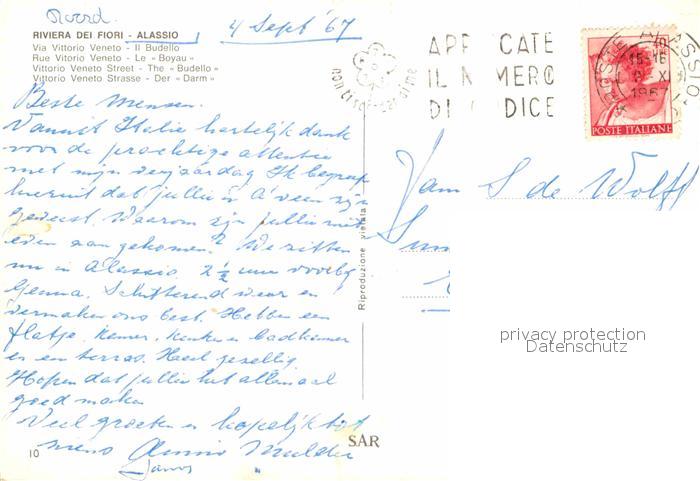 Noord.
4 Sept '67
RIVIERA DEI FIORI - ALASSIO
Via Vittorio Veneto - Il Budello
Rue Vittorio Veneto - Le « Boyau »
Vittorio Veneto Street - The « Budello »
Vittorio Veneto Strasse - Der « Darm »
Beste mensen.
Vanuit Italie hartelijk dank
voor de prachtige attentie
met mijn verjaardag. Ik begreep
hieruit dat jullie in A'veen zijn
geweest. Waarom zijn jullie niet
even aangekomen? We zitten
nu in Alassio 2 1/2 uur voorbij
Genua. Schitterend weer en
vermaken ons best. Hebben een
flatje, kamer, keuken badkamer
en een terras. Heel gezellig.
Hopen dat jullie het allemaal
goed maken
Veel groeten en hopelijk tot
ziens Mulder
10
SAR
Riproduzione vietata
APP CATE
IL N MERO
DI ODICE
15-16
1967
POSTE ITALIANE
Fam S de Wolff
privacy protection
Datenschutz